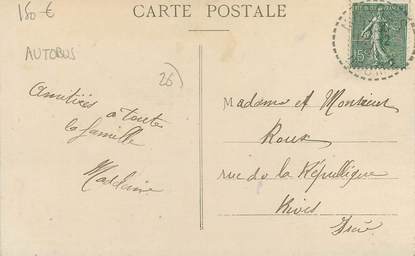 150 €
CARTE POSTALE
AUTOBUS
26)
15
Amitiés
à toute
la famille
Madeleine
Madame et Monsieur
Roux
rue de la République
Rives
Isère